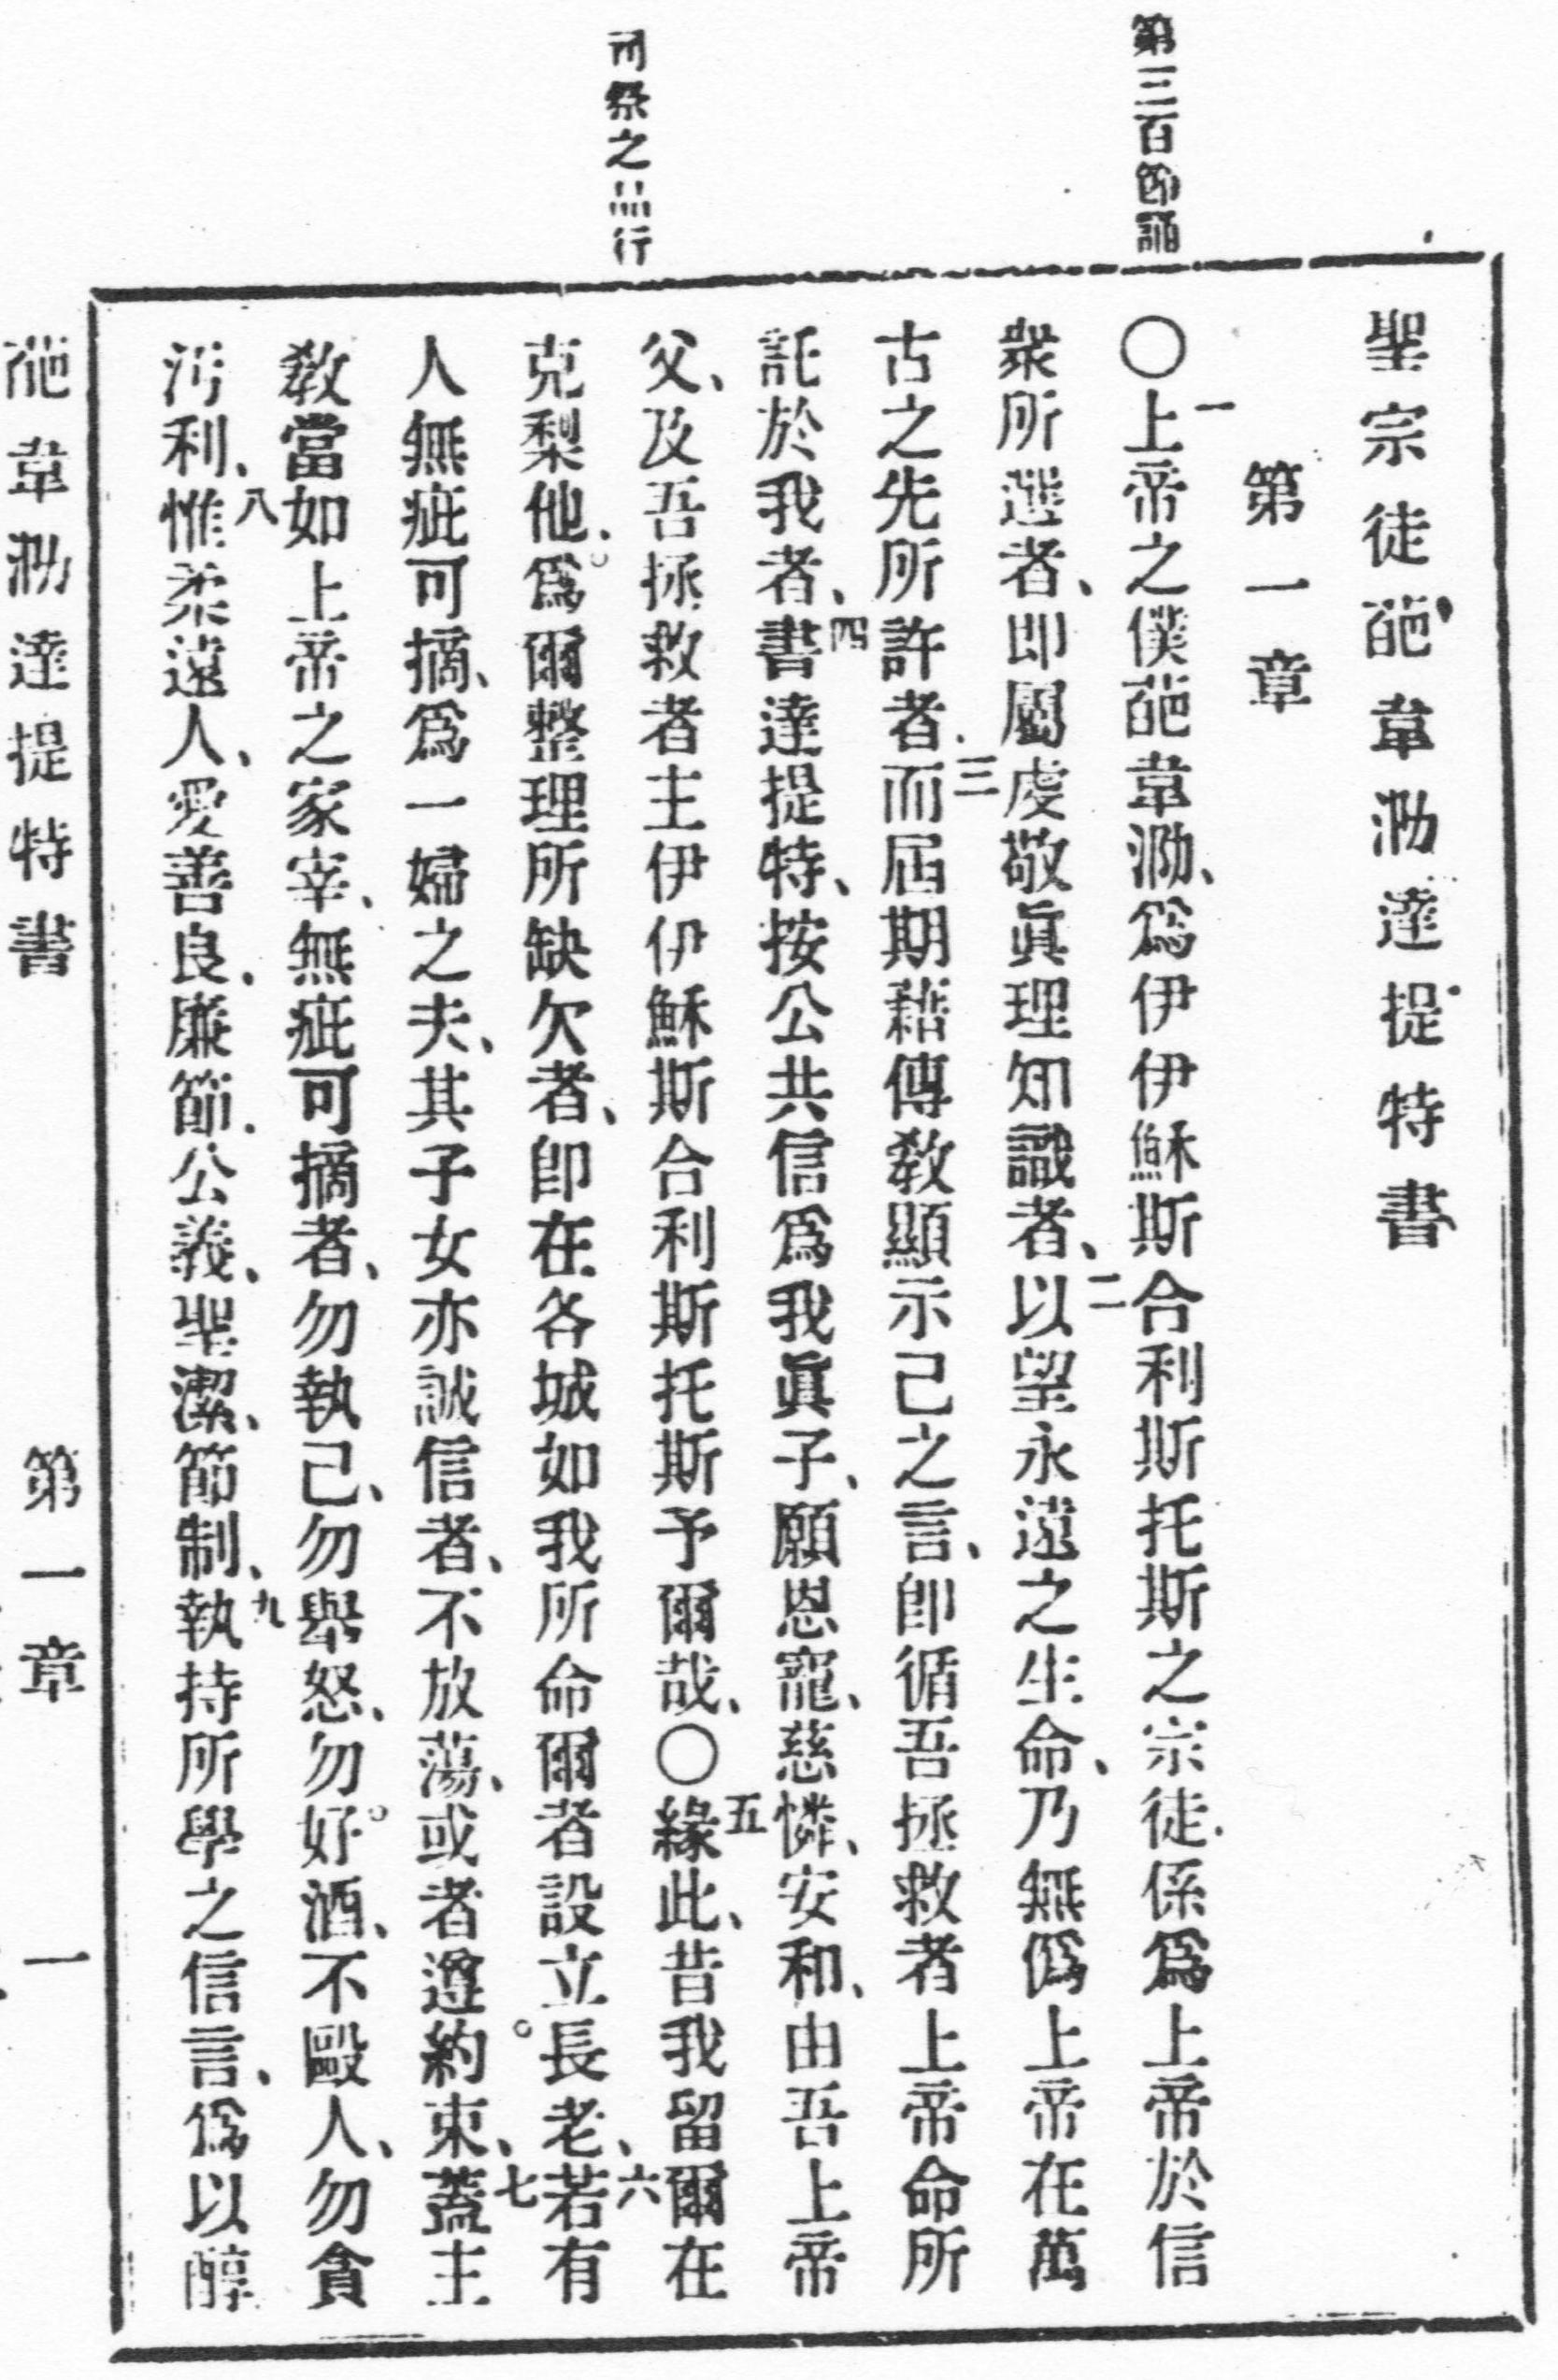 第三百節誦
司祭之品行
聖宗徒葩韋泐達提特書
第一章
○一上帝之僕葩韋泐、爲伊伊穌斯合利斯托斯之宗徒、係爲上帝於信
衆所選者、即屬虔敬眞理知識者、二以望永遠之生命、乃無僞上帝在萬
古之先所許者、三而屆期藉傳敎顯示己之言、卽循吾拯救者上帝命所
託於我者、四書達提特、按公共信爲我眞子、願恩寵、慈憐、安和、由吾上帝
父、及吾拯救者主伊伊穌斯合利斯托斯予爾哉、○五緣此、昔我留爾在
克梨他、爲爾整理所缺欠者、卽在各城如我所命爾者設立長老、六若有
人無疵可摘、爲一婦之夫、其子女亦誠信者、不放蕩、或者遵約束、七蓋主
敎當如上帝之家宰、無疵可摘者、勿執己、勿舉怒、勿好酒、不毆人、勿貪
汚利、八惟柔遠人、愛善良、廉節、公義、聖潔、節制、九執持所學之信言、爲以醇
葩韋泐達提特書 第一章 一